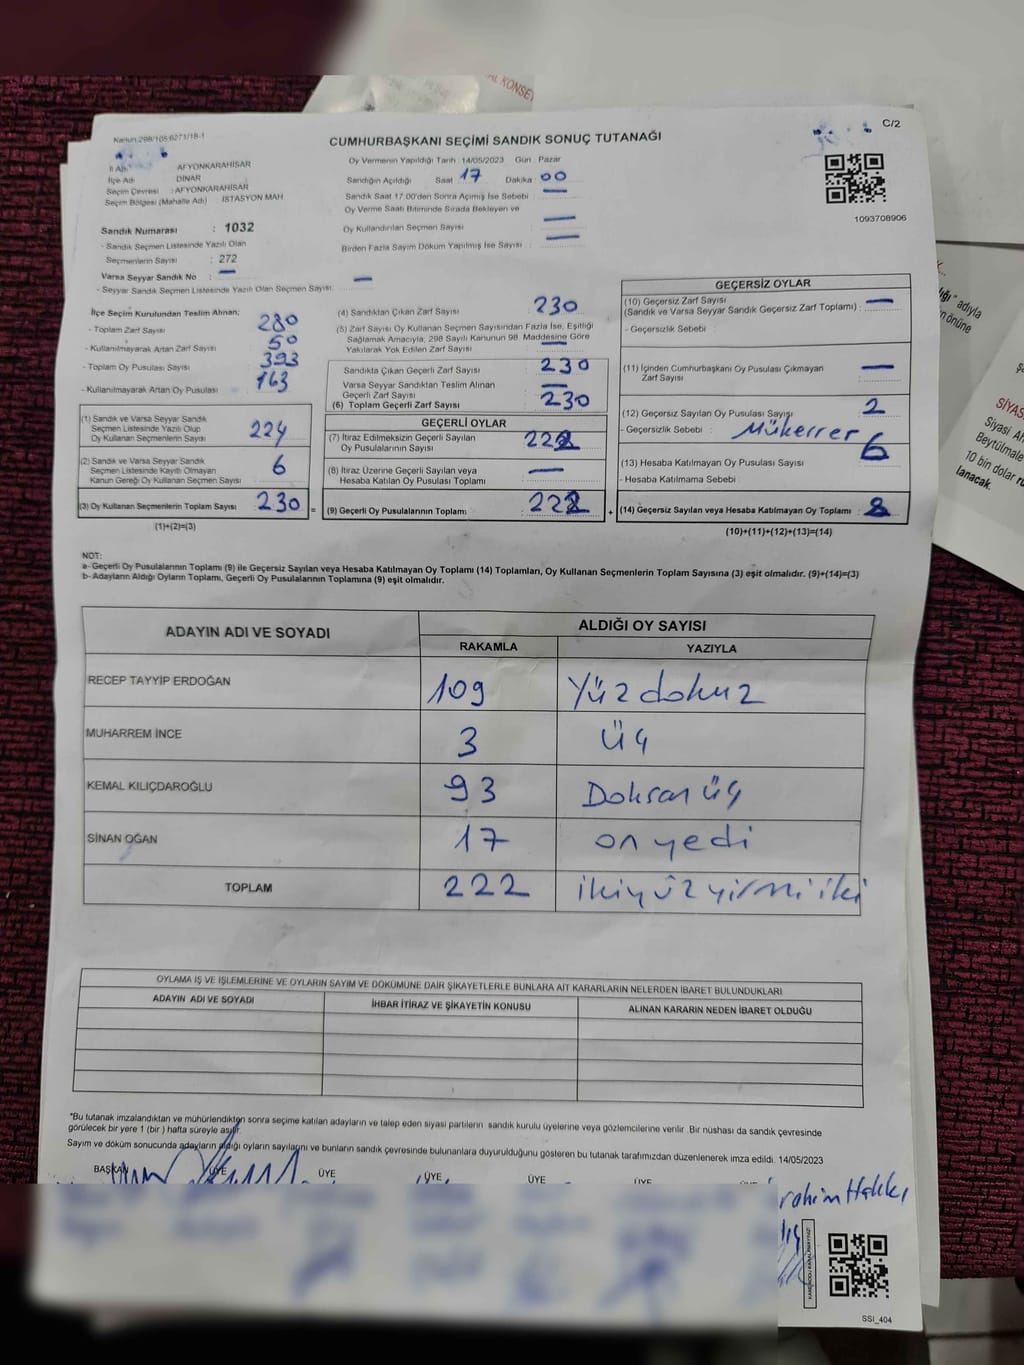 Kanun:298/105-6271/18-1
CUMHURBAŞKANI SEÇİMİ SANDIK SONUÇ TUTANAĞI
C/2
İl Adı AFYONKARAHİSAR
İlçe Adı DİNAR
Seçim Çevresi : AFYONKARAHİSAR
Seçim Bölgesi (Mahalle Adı) İSTASYON MAH
Oy Vermenin Yapıldığı Tarih : 14/05/2023 Gün : Pazar
Sandığın Açıldığı Saat : 17 Dakika : 00
Sandık Saat 17.00'den Sonra Açılmış İse Sebebi —
Oy Verme Saati Bitiminde Sırada Bekleyen ve
Oy Kullandırılan Seçmen Sayısı : —
Birden Fazla Sayım Döküm Yapılmış İse Sayısı : —
1093708906
Sandık Numarası : 1032
- Sandık Seçmen Listesinde Yazılı Olan
Seçmenlerin Sayısı : 272
Varsa Seyyar Sandık No : —
- Seyyar Sandık Seçmen Listesinde Yazılı Olan Seçmen Sayısı: —
İlçe Seçim Kurulundan Teslim Alınan;
- Toplam Zarf Sayısı 280
- Kullanılmayarak Artan Zarf Sayısı 50
- Toplam Oy Pusulası Sayısı 393
- Kullanılmayarak Artan Oy Pusulası 163
(1) Sandık ve Varsa Seyyar Sandık
Seçmen Listesinde Yazılı Olup
Oy Kullanan Seçmenlerin Sayısı 224
(2) Sandık ve Varsa Seyyar Sandık
Seçmen Listesinde Kayıtlı Olmayan
Kanun Gereği Oy Kullanan Seçmen Sayısı 6
(3) Oy Kullanan Seçmenlerin Toplam Sayısı : 230 =
(1)+(2)=(3)
(4) Sandıktan Çıkan Zarf Sayısı 230
(5) Zarf Sayısı Oy Kullanan Seçmen Sayısından Fazla İse, Eşitliği
Sağlamak Amacıyla, 298 Sayılı Kanunun 98. Maddesine Göre
Yakılarak Yok Edilen Zarf Sayısı —
Sandıkta Çıkan Geçerli Zarf Sayısı 230
Varsa Seyyar Sandıktan Teslim Alınan
Geçerli Zarf Sayısı —
(6) Toplam Geçerli Zarf Sayısı 230
GEÇERLİ OYLAR
(7) İtiraz Edilmeksizin Geçerli Sayılan
Oy Pusulasının Sayısı 222
(8) İtiraz Üzerine Geçerli Sayılan veya
Hesaba Katılan Oy Pusulası Toplamı —
(9) Geçerli Oy Pusulalarının Toplamı : 222 +
GEÇERSİZ OYLAR
(10) Geçersiz Zarf Sayısı
(Sandık ve Varsa Seyyar Sandık Geçersiz Zarf Toplamı) : —
- Geçersizlik Sebebi :
(11) İçinden Cumhurbaşkanı Oy Pusulası Çıkmayan
Zarf Sayısı —
(12) Geçersiz Sayılan Oy Pusulası Sayısı 2
- Geçersizlik Sebebi : Mükerrer
(13) Hesaba Katılmayan Oy Pusulası Sayısı 6
- Hesaba Katılmama Sebebi :
(14) Geçersiz Sayılan veya Hesaba Katılmayan Oy Toplamı : 8
(10)+(11)+(12)+(13)=(14)
NOT:
a- Geçerli Oy Pusulalarının Toplamı (9) ile Geçersiz Sayılan veya Hesaba Katılmayan Oy Toplamı (14) Toplamları, Oy Kullanan Seçmenlerin Toplam Sayısına (3) eşit olmalıdır. (9)+(14)=(3)
b- Adayların Aldığı Oyların Toplamı, Geçerli Oy Pusulalarının Toplamına (9) eşit olmalıdır.
ADAYIN ADI VE SOYADI ALDIĞI OY SAYISI
RAKAMLA YAZIYLA
RECEP TAYYİP ERDOĞAN 109 Yüzdokuz
MUHARREM İNCE 3 Üç
KEMAL KILIÇDAROĞLU 93 Doksan üç
SİNAN OĞAN 17 on yedi
TOPLAM 222 ikiyüz yirmi iki
OYLAMA İŞ VE İŞLEMLERİNE VE OYLARIN SAYIM VE DÖKÜMÜNE DAİR ŞİKAYETLERLE BUNLARA AİT KARARLARIN NELERDEN İBARET BULUNDUKLARI
ADAYIN ADI VE SOYADI İHBAR İTİRAZ VE ŞİKAYETİN KONUSU ALINAN KARARIN NEDEN İBARET OLDUĞU
*Bu tutanak imzalandıktan ve mühürlendikten sonra seçime katılan adayların ve talep eden siyasi partilerin sandık kurulu üyelerine veya gözlemcilerine verilir .Bir nüshası da sandık çevresinde
görülecek bir yere 1 (bir ) hafta süreyle asılır.
Sayım ve döküm sonucunda adayların aldığı oyların sayılarını ve bunların sandık çevresinde bulunanlara duyurulduğunu gösteren bu tutanak tarafımızdan düzenlenerek imza edildi. 14/05/2023
BAŞKAN ÜYE ÜYE ÜYE ÜYE ÜYE
rahim Hakkı
SSİ_404
AL KONSEY
ğı" adıyla
n önüne
SİYAS
Siyasi Ah
Beytülmale
10 bin dolar
lanacak.